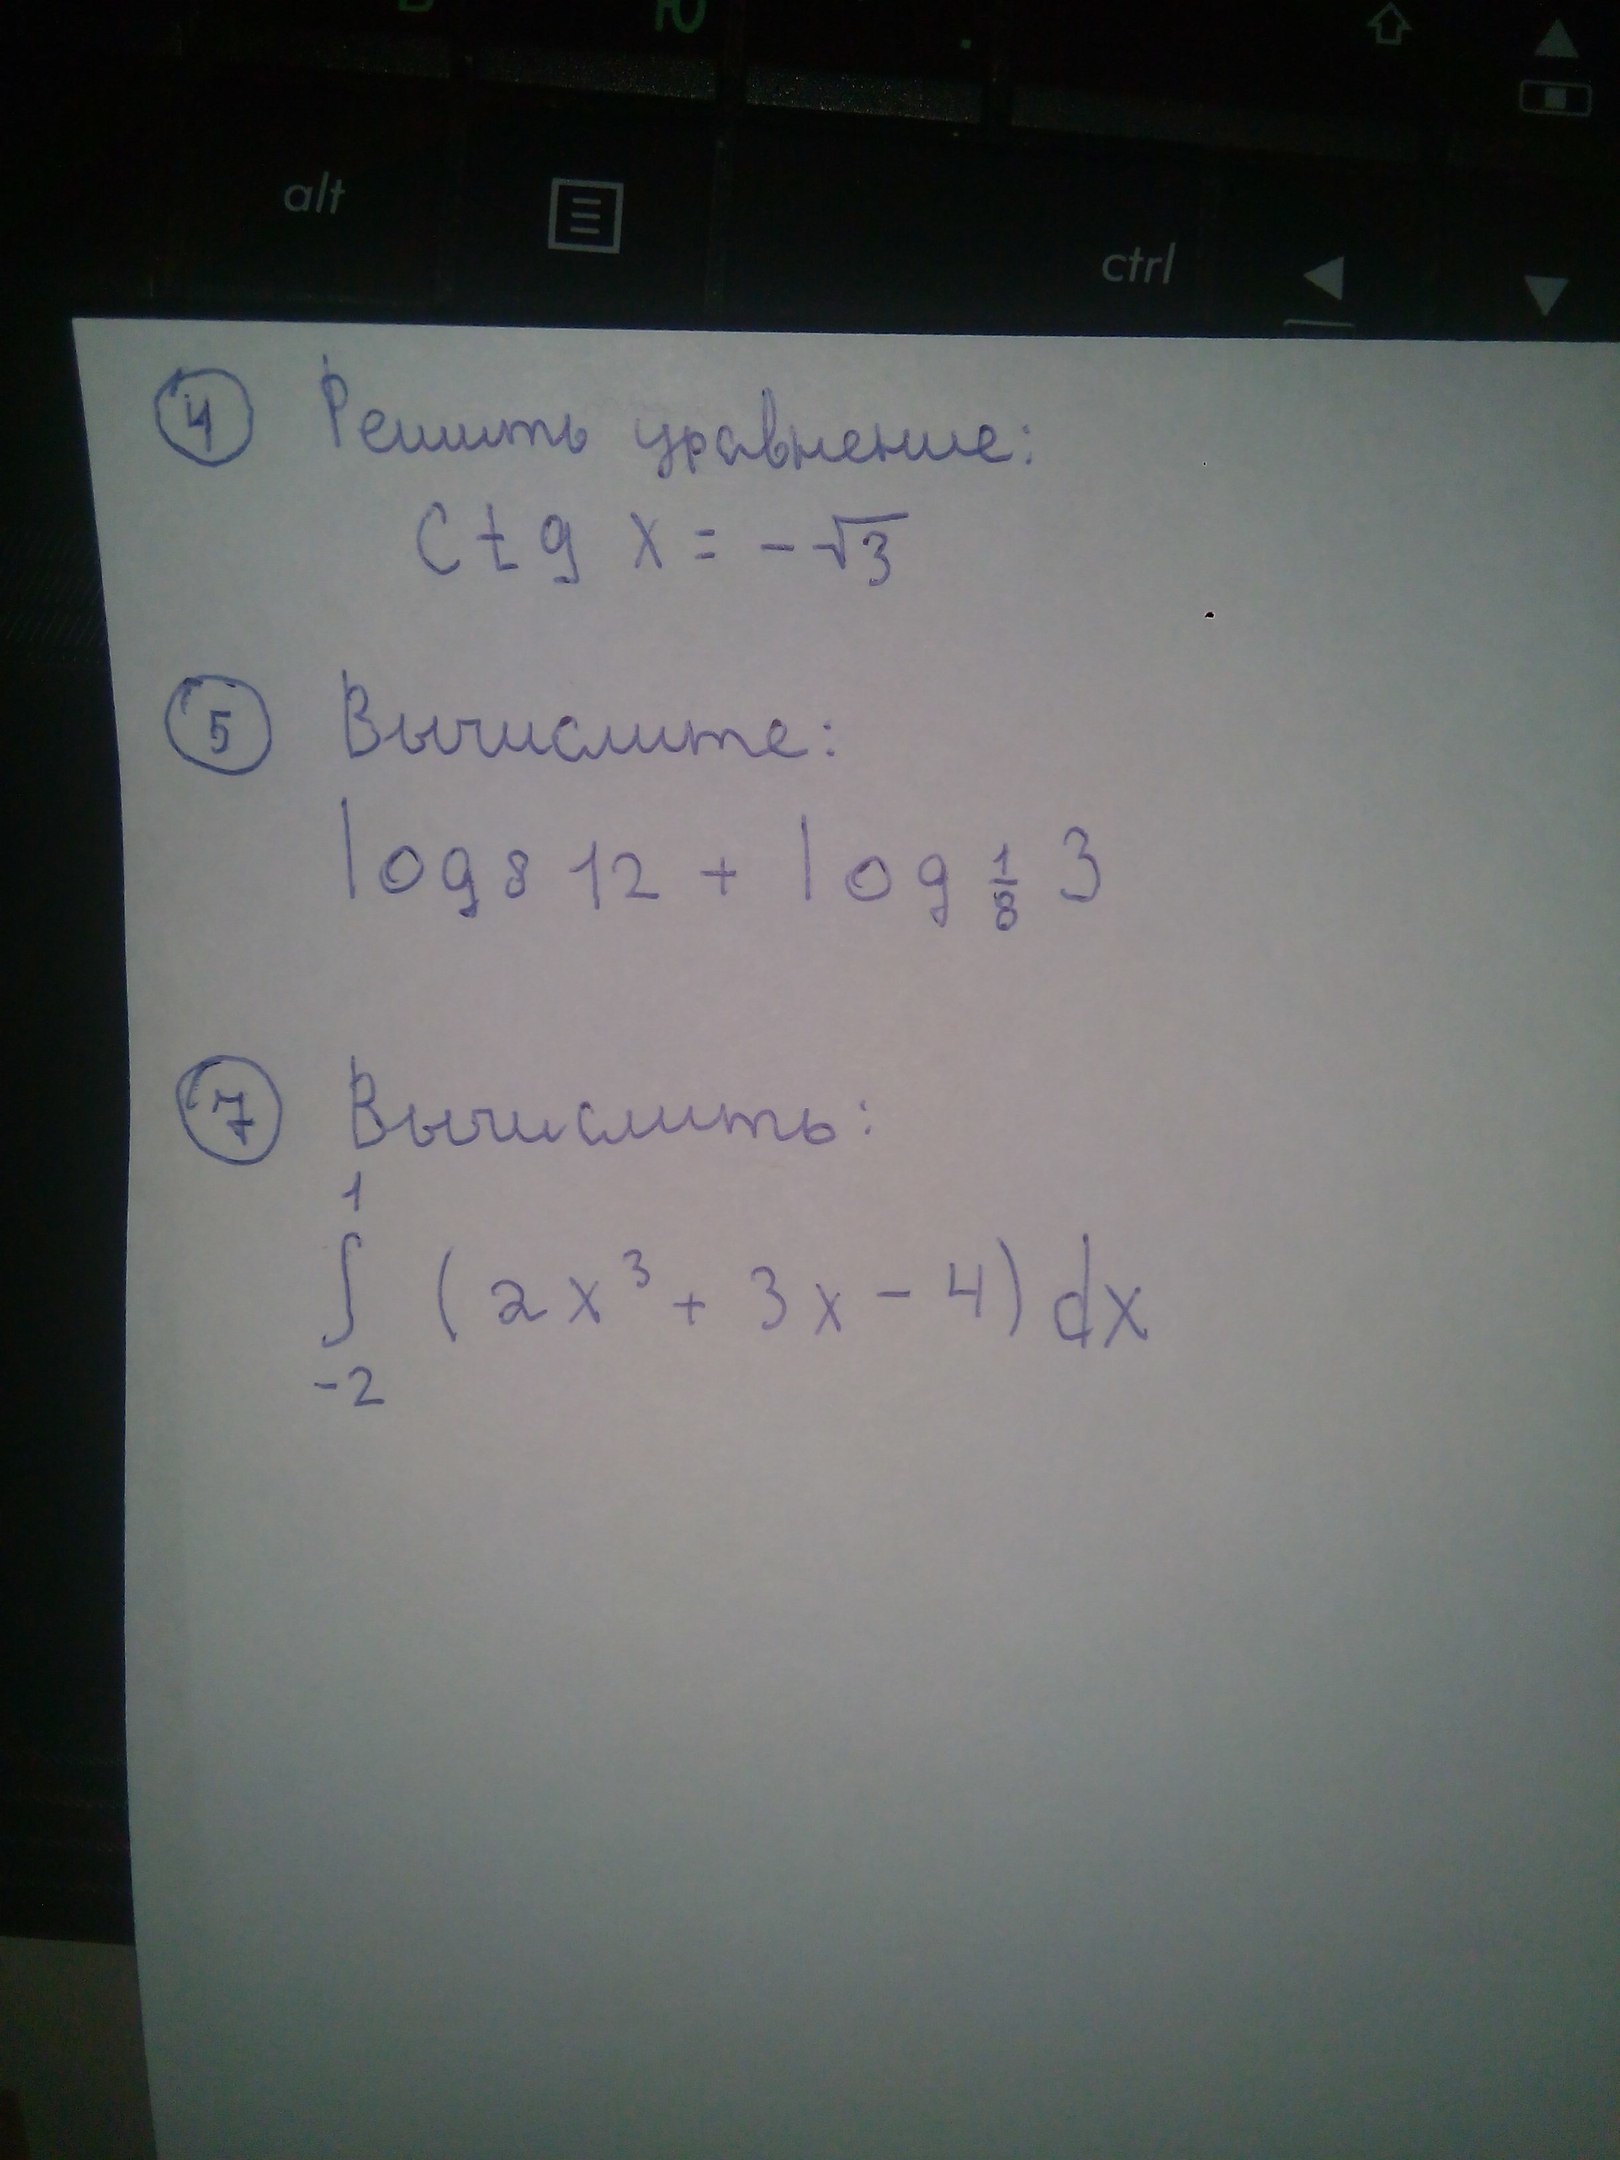 Ю
alt
ctrl
4 Решить уравнение:
ctg x = -√3
5 Вычислите:
log₈ 12 + log 1/8 3
7 Вычислить:
1
∫ (2x³ + 3x - 4) dx
-2